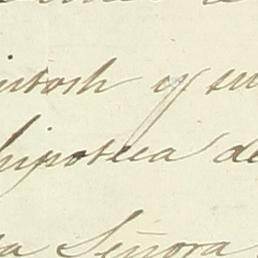 intosh y su
hipoteca de
la Señora